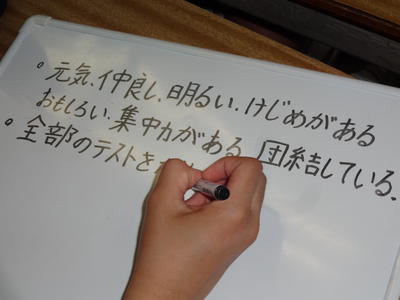 。元気、仲良し、明るい、けじめがある
おもしろい、集中力がある、団結している。
。全部のテストを